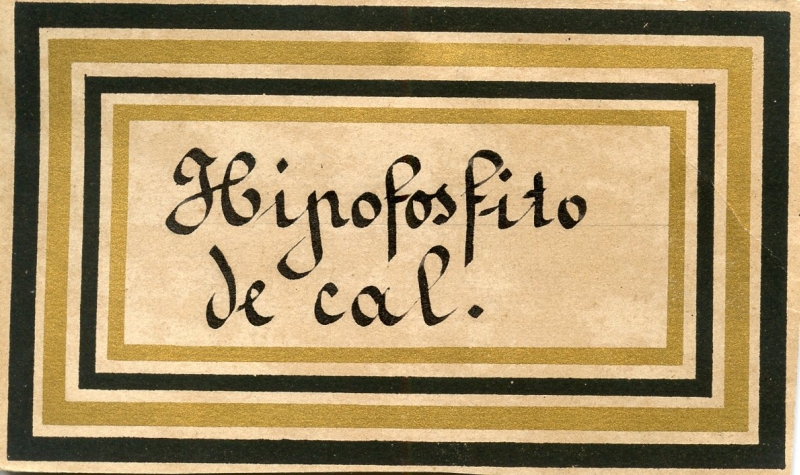 Hipofosfito
de cal.